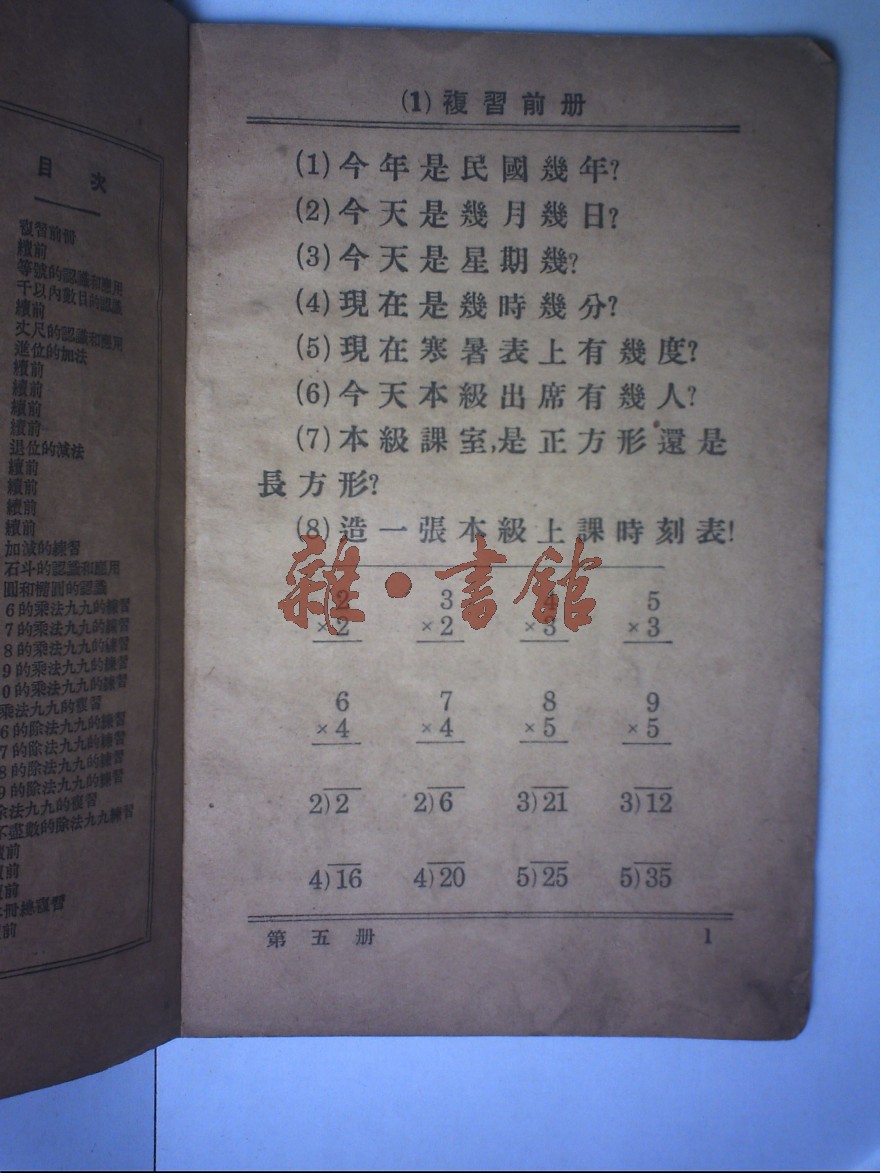 目次
複習前冊
續前
等號的認識和應用
千以內數目的認識
續前
丈尺的認識和應用
進位的加法
續前
續前
續前
續前
退位的減法
續前
續前
續前
續前
加減的練習
石斗的認識和應用
圓和橢圓的認識
6的乘法九九的練習
7的乘法九九的練習
8的乘法九九的練習
9的乘法九九的練習
0的乘法九九的練習
乘法九九的複習
6的除法九九的練習
7的除法九九的練習
8的除法九九的練習
9的除法九九的練習
除法九九的複習
不盡數的除法九九練習
續前
續前
續前
冊總複習
前
(1)複習前册
(1)今年是民國幾年?
(2)今天是幾月幾日?
(3)今天是星期幾?
(4)現在是幾時幾分?
(5)現在寒暑表上有幾度?
(6)今天本級出席有幾人?
(7)本級課室,是正方形還是
長方形?
(8)造一張本級上課時刻表!
雜·書館
2 3 4 5
×2 ×2 ×3 ×3
6 7 8 9
×4 ×4 ×5 ×5
2)2 2)6 3)21 3)12
4)16 4)20 5)25 5)35
第五册 1